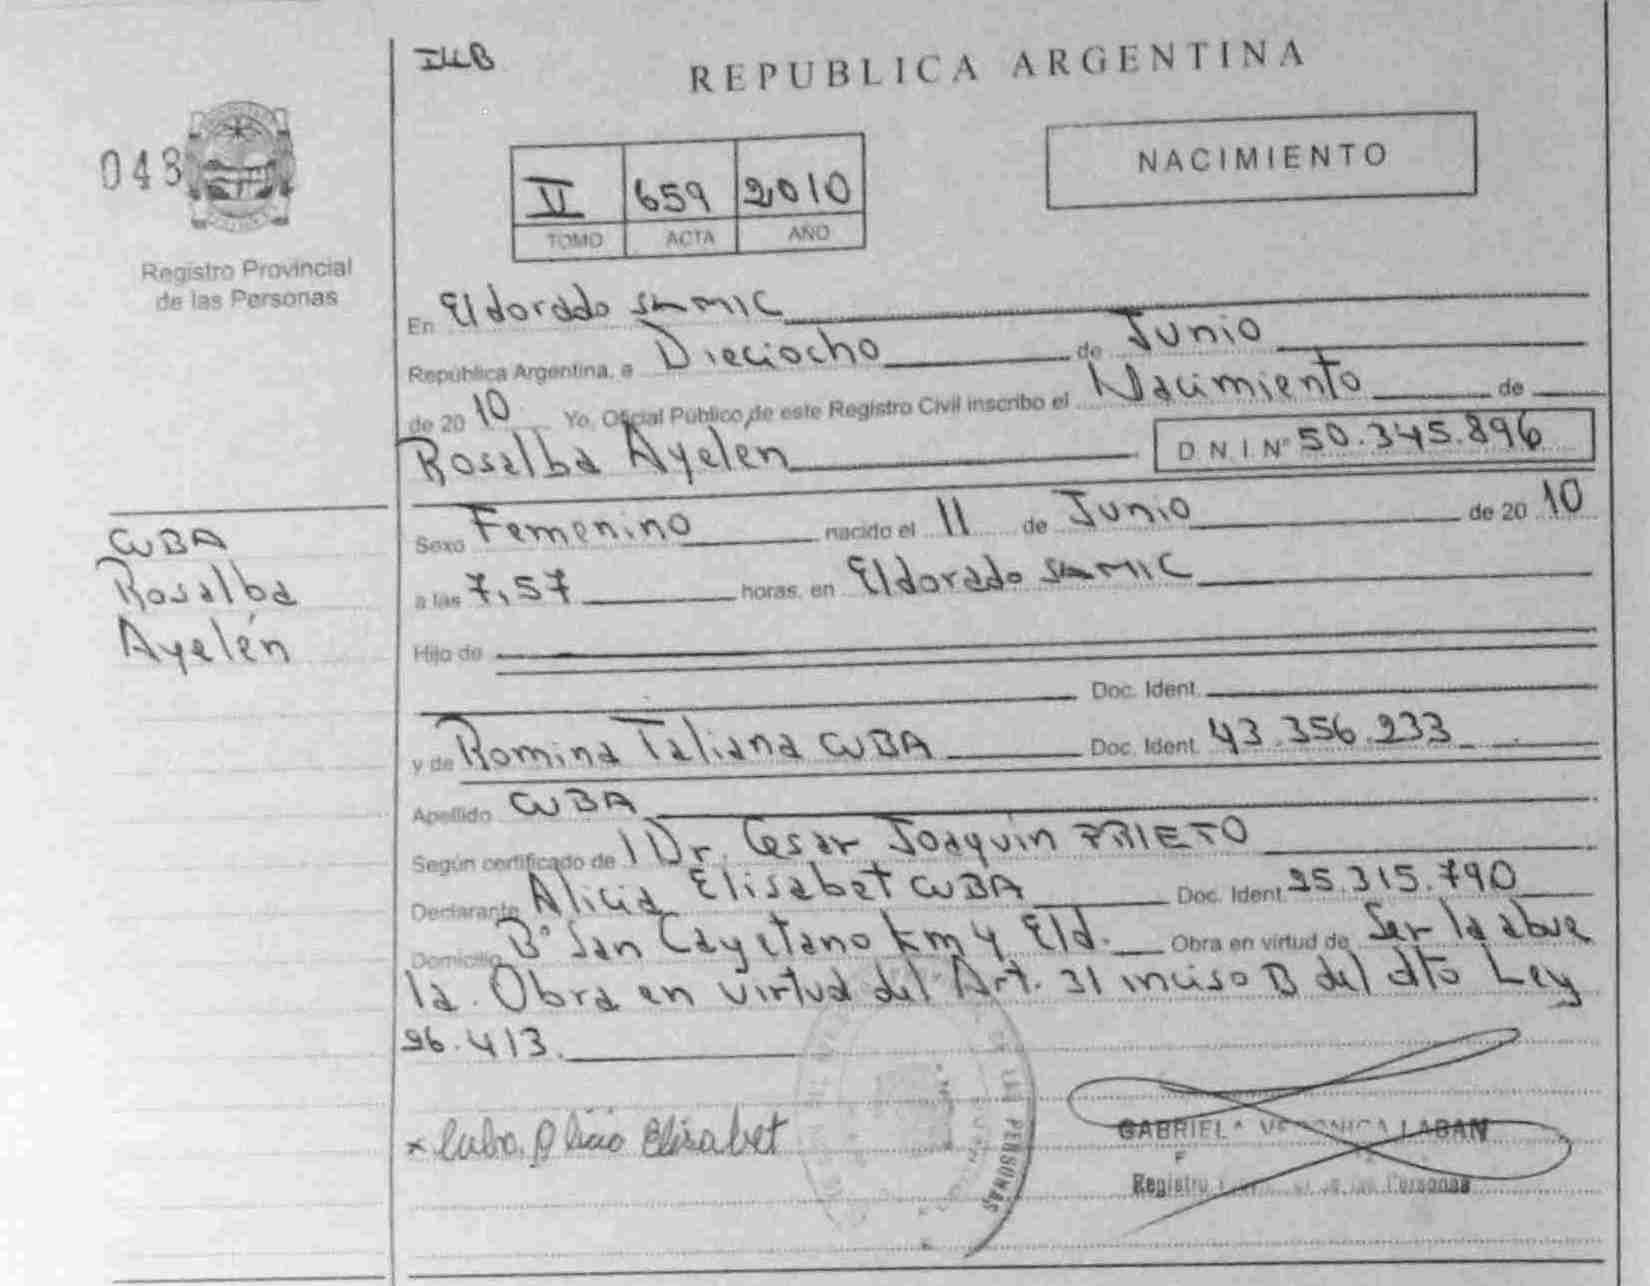 REPUBLICA ARGENTINA
048
Registro Provincial
de las Personas
II 659 2010
TOMO ACTA AÑO
NACIMIENTO
En Eldorado SAMIC
República Argentina, a Dieciocho de Junio
de 2010 Yo, Oficial Público de este Registro Civil inscribo el Nacimiento de
Rosalba Ayelen D N I Nº 50.345.896
CUBA
Rosalba
Ayelén
Sexo Femenino nacido el 11 de Junio de 2010
a las 7,57 horas, en Eldorado SAMIC
Hijo de
Doc. Ident.
y de Romina Taliana CUBA Doc. Ident. 43.356.233
Apellido CUBA
Según certificado de Dr. Cesar Joaquin PRIETO
Declarante Alicia Elisabet CUBA Doc. Ident. 25.315.790
Domicilio Bº San Cayetano km 4 Eld. Obra en virtud de Ser la abue
la. Obra en virtud del Art. 31 inciso B del dto Ley
26.413.
x Cuba, Alicia Elisabet
LAS PERSONAS
GABRIELA VERONICA LABAN
Registro Personas